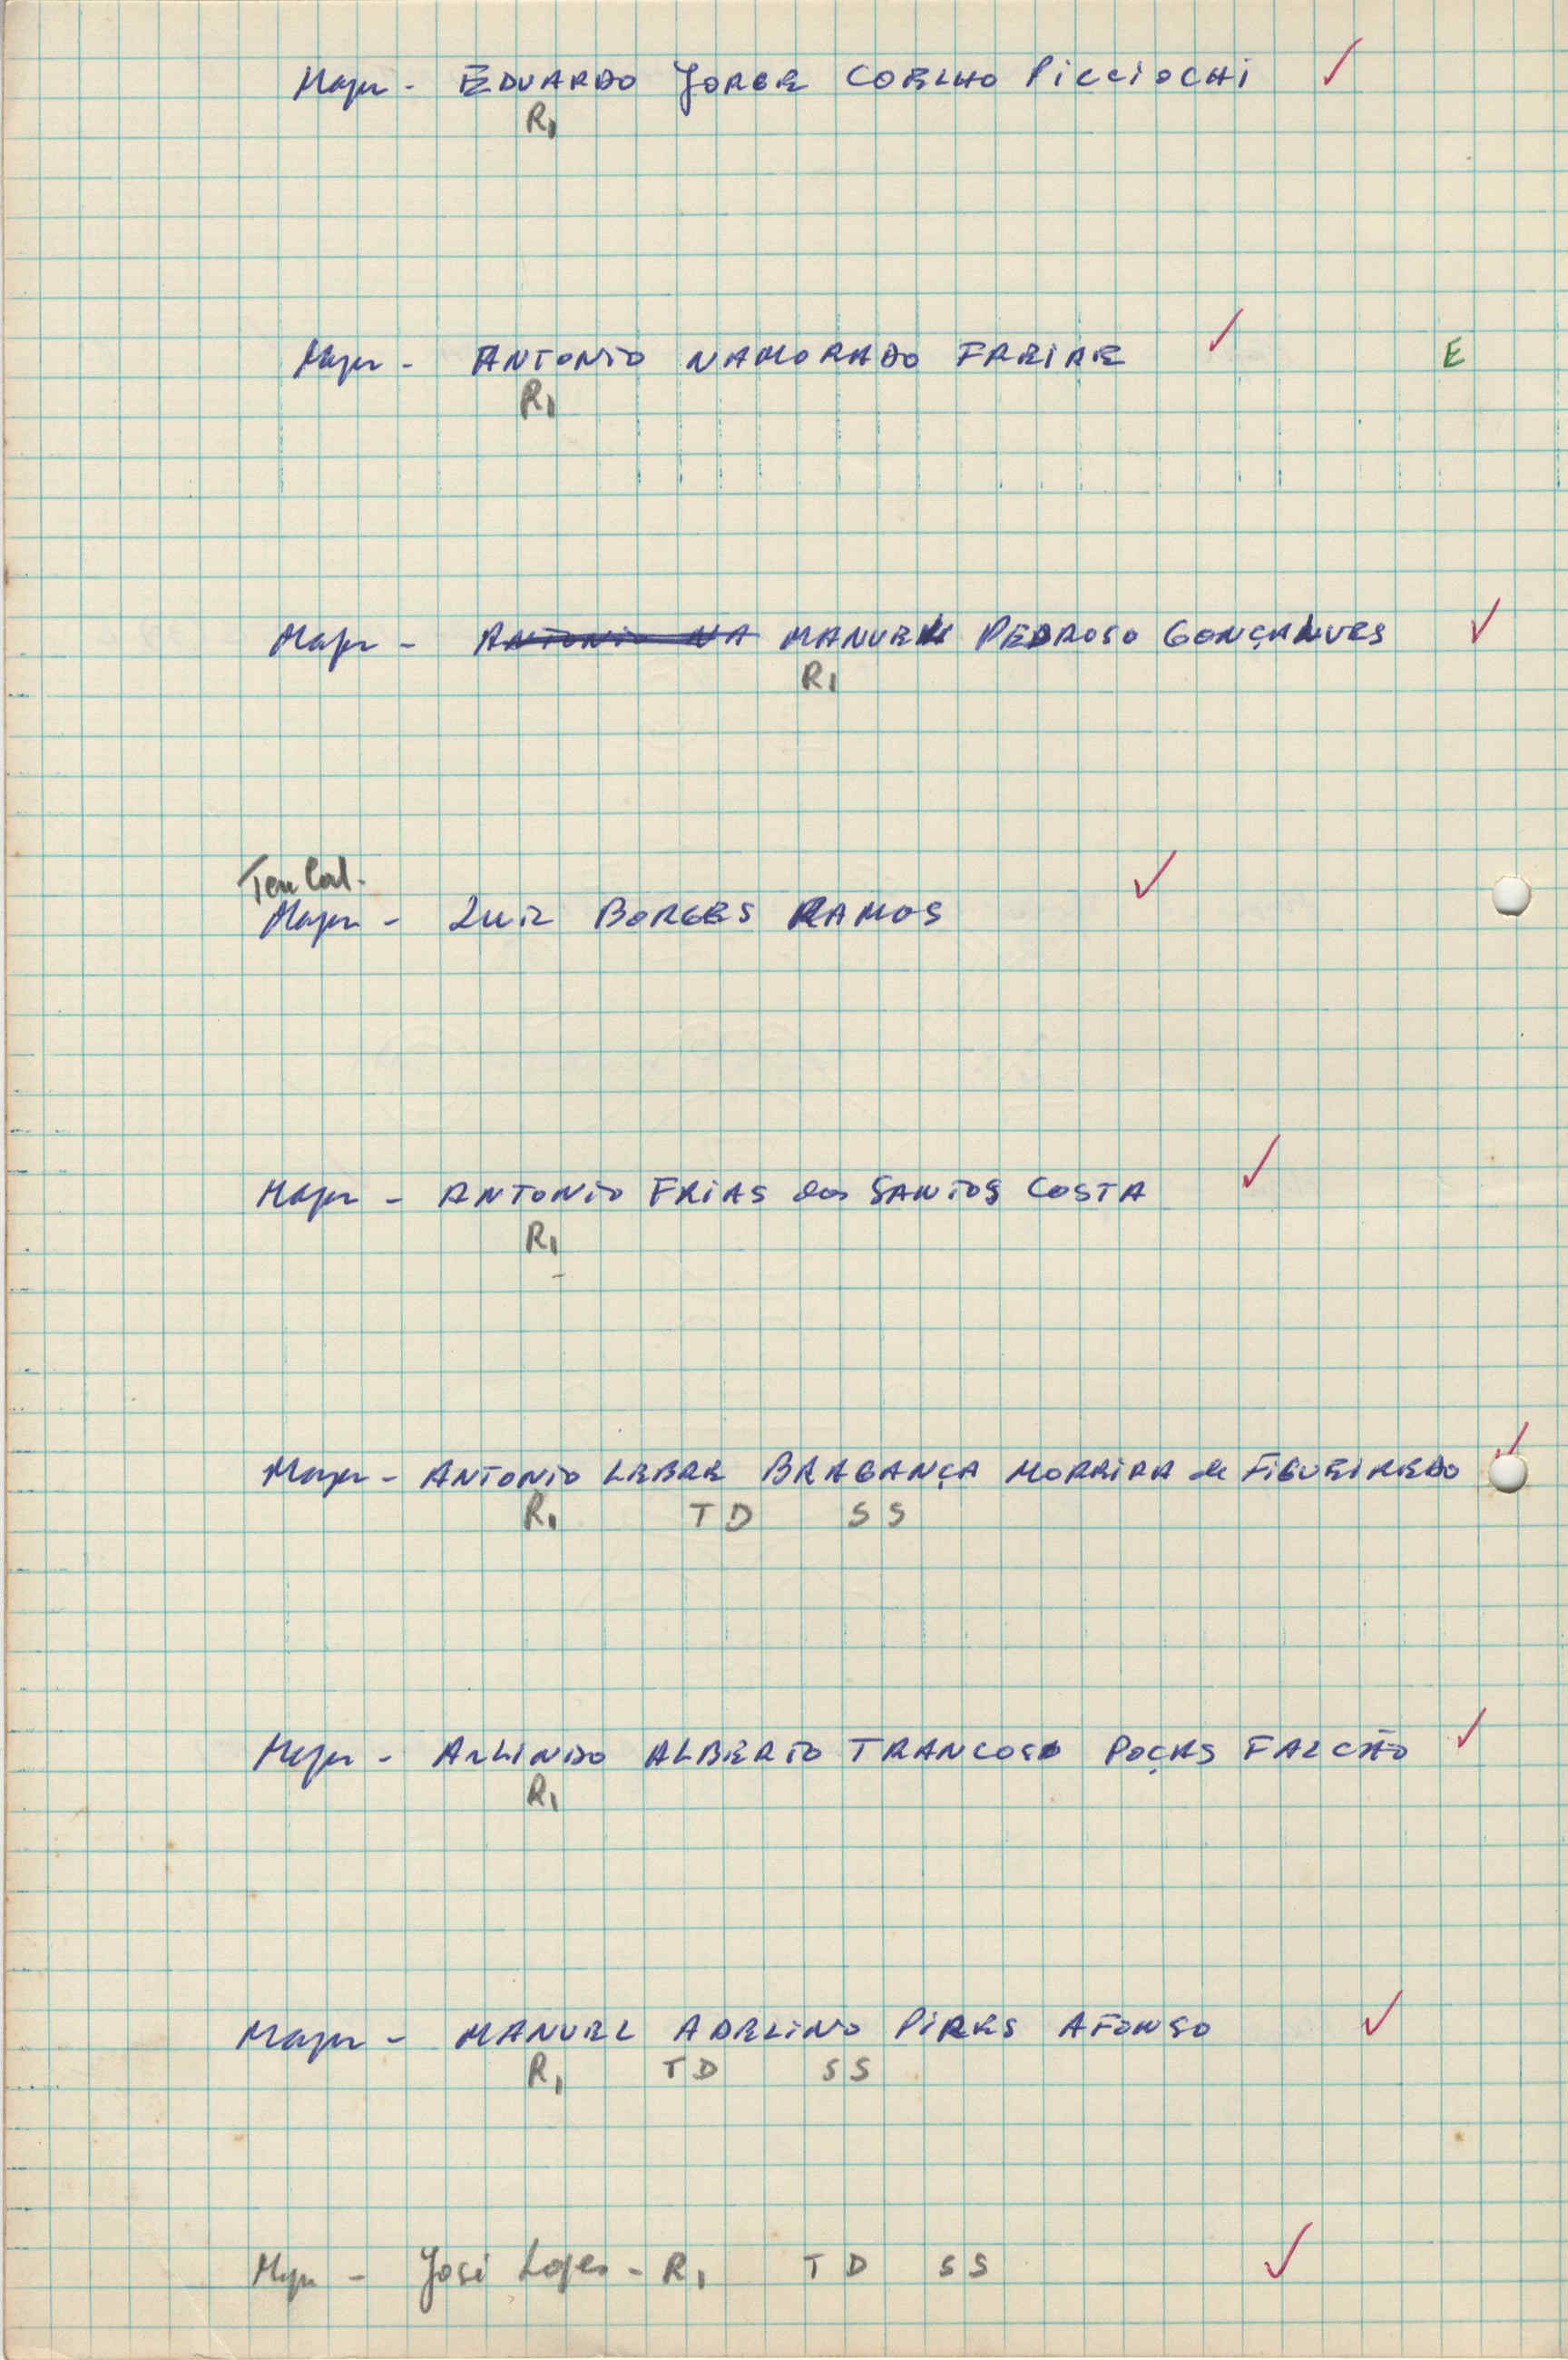 Major - EDUARDO JORGE COELHO PICCIOCHI ✓
R1
Major - ANTONIO NAMORADO FREIRE ✓ E
R1
Major - ANTONIO NA MANUEL PEDROSO GONÇALVES ✓
R1
Ten Col.
Major - LUIZ BORGES RAMOS ✓
Major - ANTONIO FRIAS dos SANTOS COSTA ✓
R1
Major - ANTONIO LEBRE BRAGANÇA MOREIRA de FIGUEIREDO ✓
R1 TD SS
Major - ARLINDO ALBERTO TRANCOSO POÇAS FALCÃO ✓
R1
Major - MANUEL ADELINO PIRES AFONSO ✓
R1 TD SS
Major - José Lopes - R1 TD SS ✓